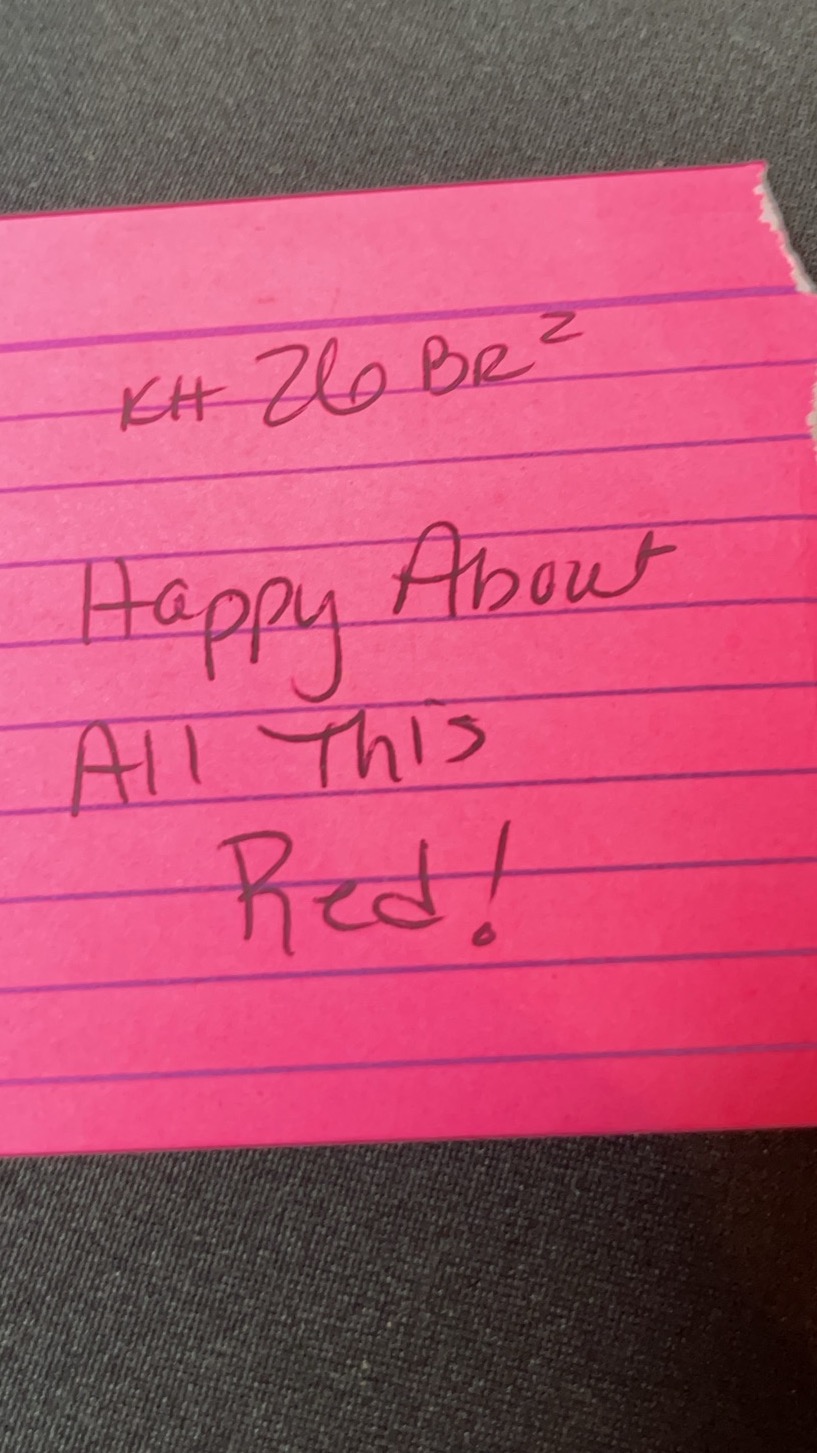 KH 26 BR²
Happy About
All This
Red!